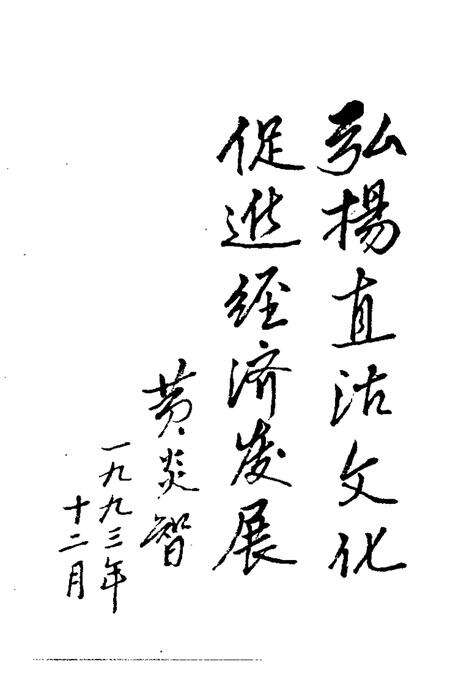 弘揚直沽文化
促進経济发展
黄炎智
一九九三年
十二月